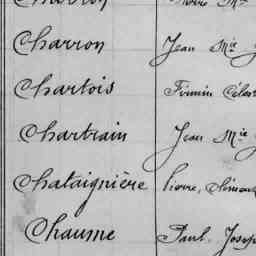 Charron Jean Mie
Chartois Firmin Célest
Chartrain Jean Mie
Chataignière Pierre, Clément
Chaume Paul. Josep